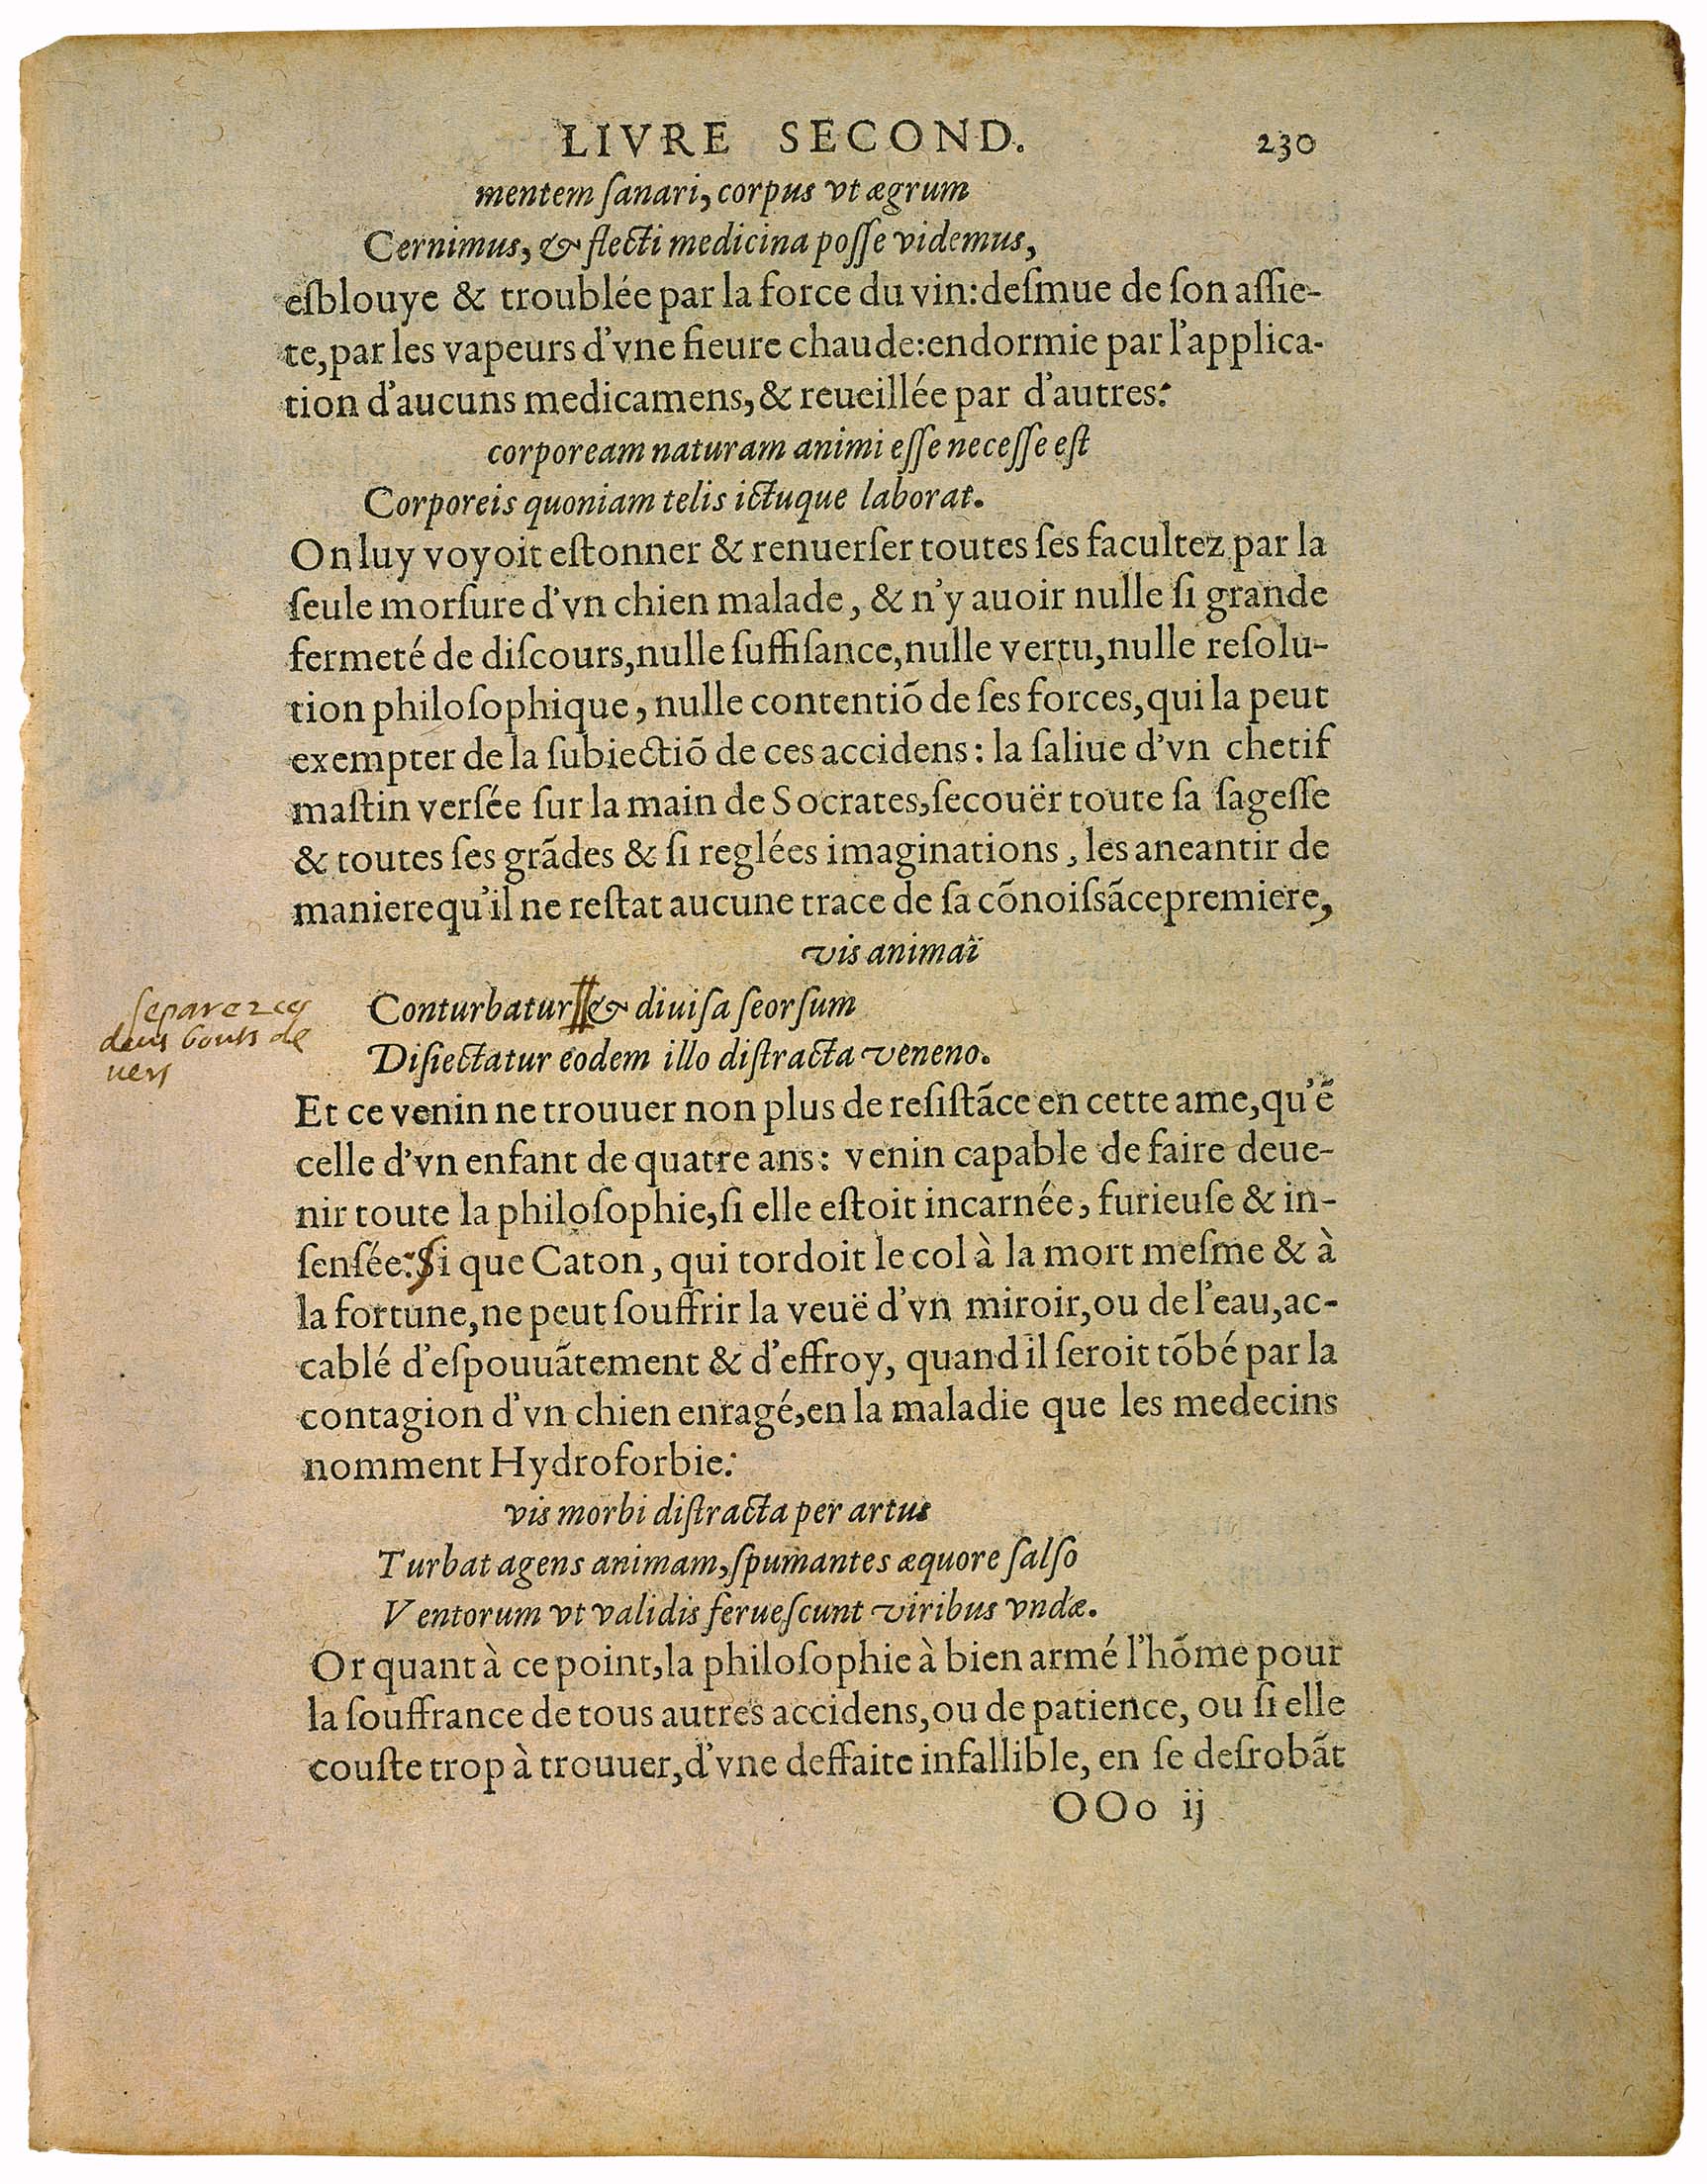 LIVRE SECOND. 230
mentem ſanari, corpus vt ægrum
Cernimus, & flecti medicina poſſe videmus,
eſblouye & troublée par la force du vin: deſmue de ſon aſſie-
te, par les vapeurs d'vne fieure chaude: endormie par l'applica-
tion d'aucuns medicamens, & reueillée par d'autres:
corpoream naturam animi eſſe neceſſe eſt
Corporeis quoniam telis ictuque laborat.
On luy voyoit eſtonner & renuerſer toutes ſes facultez par la
ſeule morſure d'vn chien malade, & n'y auoir nulle ſi grande
fermeté de diſcours, nulle ſuffiſance, nulle vertu, nulle reſolu-
tion philoſophique, nulle contentiõ de ſes forces, qui la peut
exempter de la ſubiectiõ de ces accidens: la ſaliue d'vn chetif
maſtin verſée ſur la main de Socrates, ſecouër toute ſa ſageſſe
& toutes ſes grãdes & ſi reglées imaginations, les aneantir de
maniere qu'il ne reſtat aucune trace de ſa cõnoiſsãce premiere,
vis animaï
separez ces
deus bouts de
vers
Conturbatur || & diuiſa ſeorſum
Diſiectatur eodem illo diſtracta veneno.
Et ce venin ne trouuer non plus de reſiſtãce en cette ame, qu'ẽ
celle d'vn enfant de quatre ans: venin capable de faire deue-
nir toute la philoſophie, ſi elle eſtoit incarnée, furieuſe & in-
ſenſée: Si que Caton, qui tordoit le col à la mort meſme & à
la fortune, ne peut ſouffrir la veuë d'vn miroir, ou de l'eau, ac-
cablé d'eſpouuãtement & d'effroy, quand il ſeroit tõbé par la
contagion d'vn chien enragé, en la maladie que les medecins
nomment Hydroforbie:
vis morbi diſtracta per artus
Turbat agens animam, ſpumantes æquore ſalſo
Ventorum vt validis ferueſcunt viribus vndæ.
Or quant à ce point, la philoſophie à bien armé l'hõme pour
la ſouffrance de tous autres accidens, ou de patience, ou ſi elle
couſte trop à trouuer, d'vne deffaite infallible, en ſe deſrobãt
OOo ij